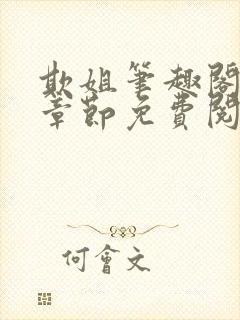 欺姐筆趣閣
章節免費閱
何會文